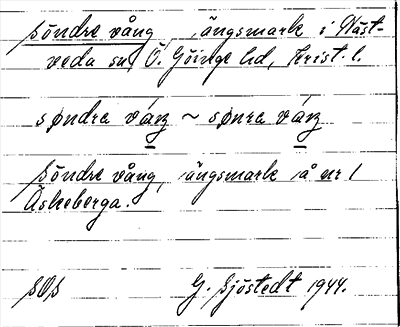 Söndre vång, ängsmark i Väst-
veda sn, Ö. Göinge hd, Krist. l.
søndra váŋ ~ sønra váŋ
Söndre vång, ängsmark å nr 1
Äskeberga.
SOS G. Sjöstedt 1944.